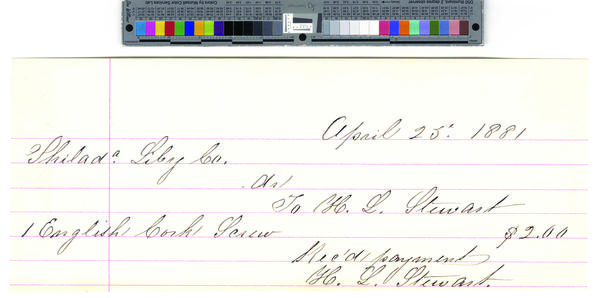 April 25. 1881
Philada. Liby Co.
Dr
To H. L. Stewart
1 English Cork Screw $2.00
Rec'd payment
H. L. Stewart.